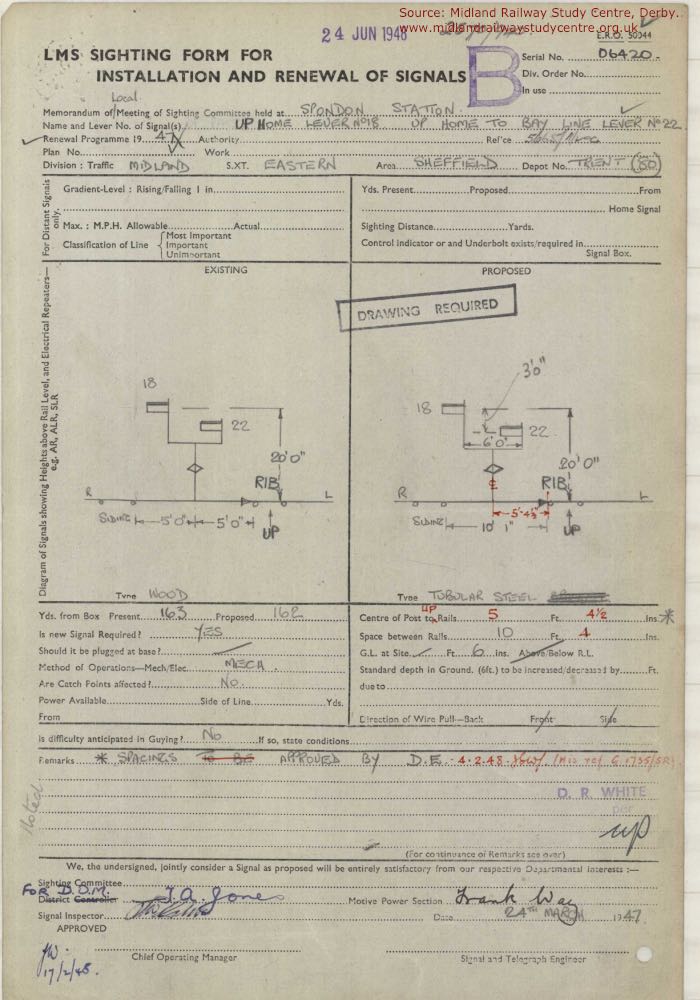 Source: Midland Railway Study Centre, Derby.
www.midlandrailwaystudycentre.org.uk
24 JUN 1948
E.R.O. 50044
LMS SIGHTING FORM FOR
INSTALLATION AND RENEWAL OF SIGNALS
B
Serial No. D6420
Div. Order No.
In use
Local
Memorandum of Meeting of Sighting Committee held at SPONDON STATION
Name and Lever No. of Signal(s) UP HOME LEVER No 18 UP HOME TO BAY LINE LEVER No 22
Renewal Programme 19 47 Authority Ref'ce
Plan No. Work
Division : Traffic MIDLAND S.XT. EASTERN Area SHEFFIELD Depot No. TRENT (80)
For Distant Signals only.
Gradient-Level : Rising/Falling 1 in
Max. : M.P.H. Allowable Actual
Classification of Line { Most Important
Important
Unimportant
Yds. Present Proposed From
Home Signal
Sighting Distance Yards.
Control Indicator or and Underbolt exists/required in
Signal Box.
Diagram of Signals showing Heights above Rail Level, and Electrical Repeaters—
e.g. AR, ALR, SLR
EXISTING
18
22
20'0"
RIB
R
L
SIDING 5'0" 5'0"
UP
Type WOOD
PROPOSED
DRAWING REQUIRED
3'0"
18
22
6'0"
20'0"
RIB
R
L
5'-4½"
SIDING 10' 1"
UP
Type TUBULAR STEEL
Yds. from Box Present 163 Proposed 162
Is new Signal Required? YES
Should it be plugged at base?
Method of Operations—Mech/Elec. MECH.
Are Catch Points affected? NO.
Power Available Side of Line Yds.
From
Centre of Post to UP Rails 5 Ft. 4½ Ins. *
Space between Rails 10 Ft. 4 Ins.
G.L. at Site Ft. 6 ins. Above/Below R.L.
Standard depth in Ground. (6ft.) to be increased/decreased by Ft.
due to
Direction of Wire Pull—Back Front Side
Is difficulty anticipated in Guying? No If so, state conditions
Remarks * SPACINGS TO BE APPROVED BY D.E. 4.2.48.
Noted
D. R. WHITE
per
(For continuance of Remarks see over)
We, the undersigned, jointly consider a Signal as proposed will be entirely satisfactory from our respective Departmental interests :—
Sighting Committee
FOR D.O.M.
District Controller J.A. Jones Motive Power Section Frank Way
Signal Inspector Date 24TH MARCH 1947
APPROVED
17/2/48.
Chief Operating Manager
Signal and Telegraph Engineer